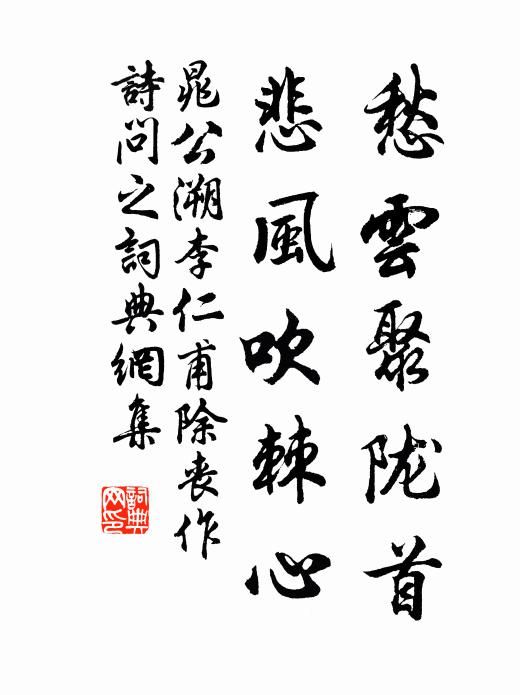 愁雲聚陇首
悲風吹棘心
晁公溯李仁甫除丧作
詩問之詞典網集
詞典
网印